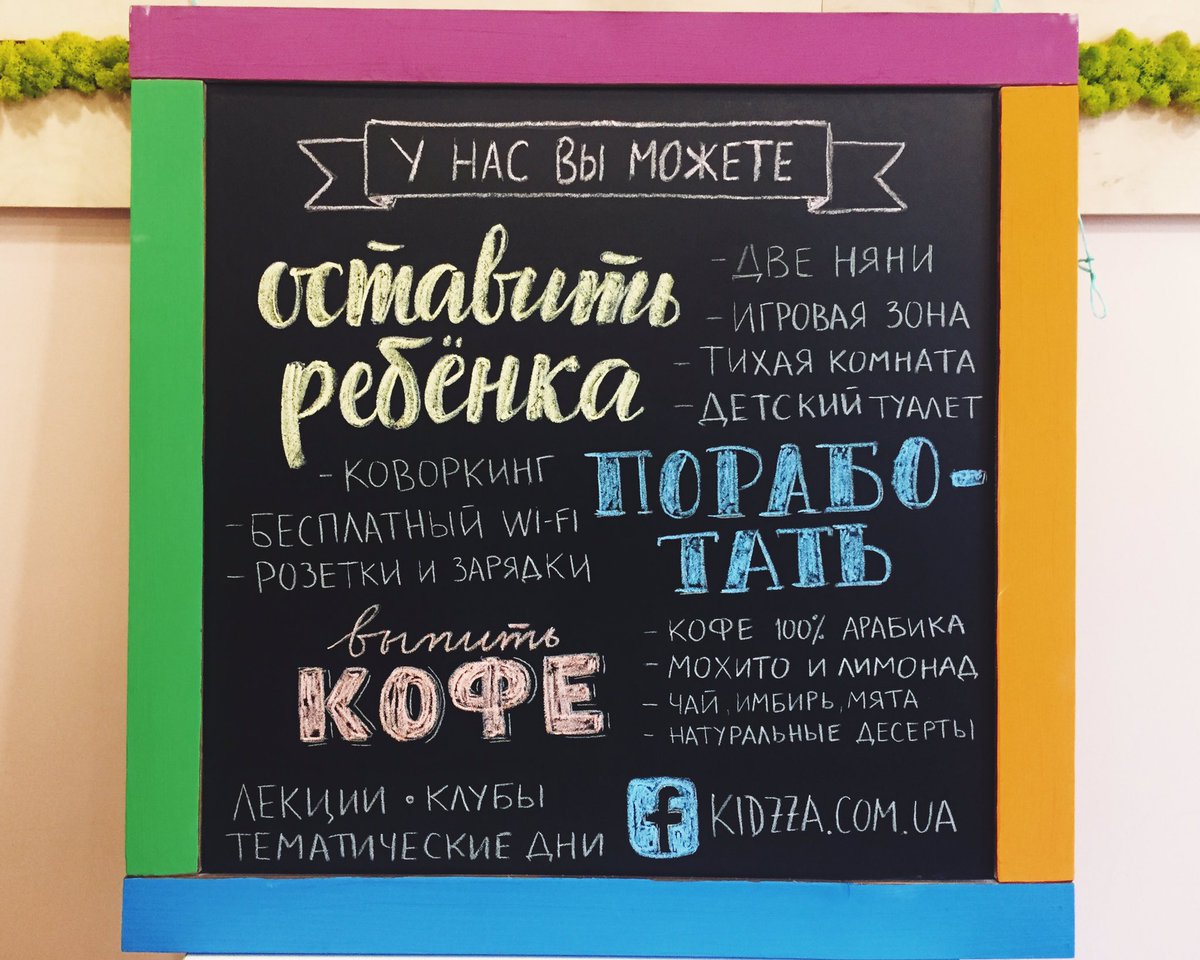 У НАС ВЫ МОЖЕТЕ
оставить
ребёнка
- ДВЕ НЯНИ
- ИГРОВАЯ ЗОНА
- ТИХАЯ КОМНАТА
- ДЕТСКИЙ ТУАЛЕТ
ПОРАБО-
ТАТЬ
- КОВОРКИНГ
- БЕСПЛАТНЫЙ WI-FI
- РОЗЕТКИ И ЗАРЯДКИ
выпить
КОФЕ
- КОФЕ 100% АРАБИКА
- МОХИТО И ЛИМОНАД
- ЧАЙ, ИМБИРЬ, МЯТА
- НАТУРАЛЬНЫЕ ДЕСЕРТЫ
ЛЕКЦИИ • КЛУБЫ
ТЕМАТИЧЕСКИЕ ДНИ
f KIDZZA.COM.UA